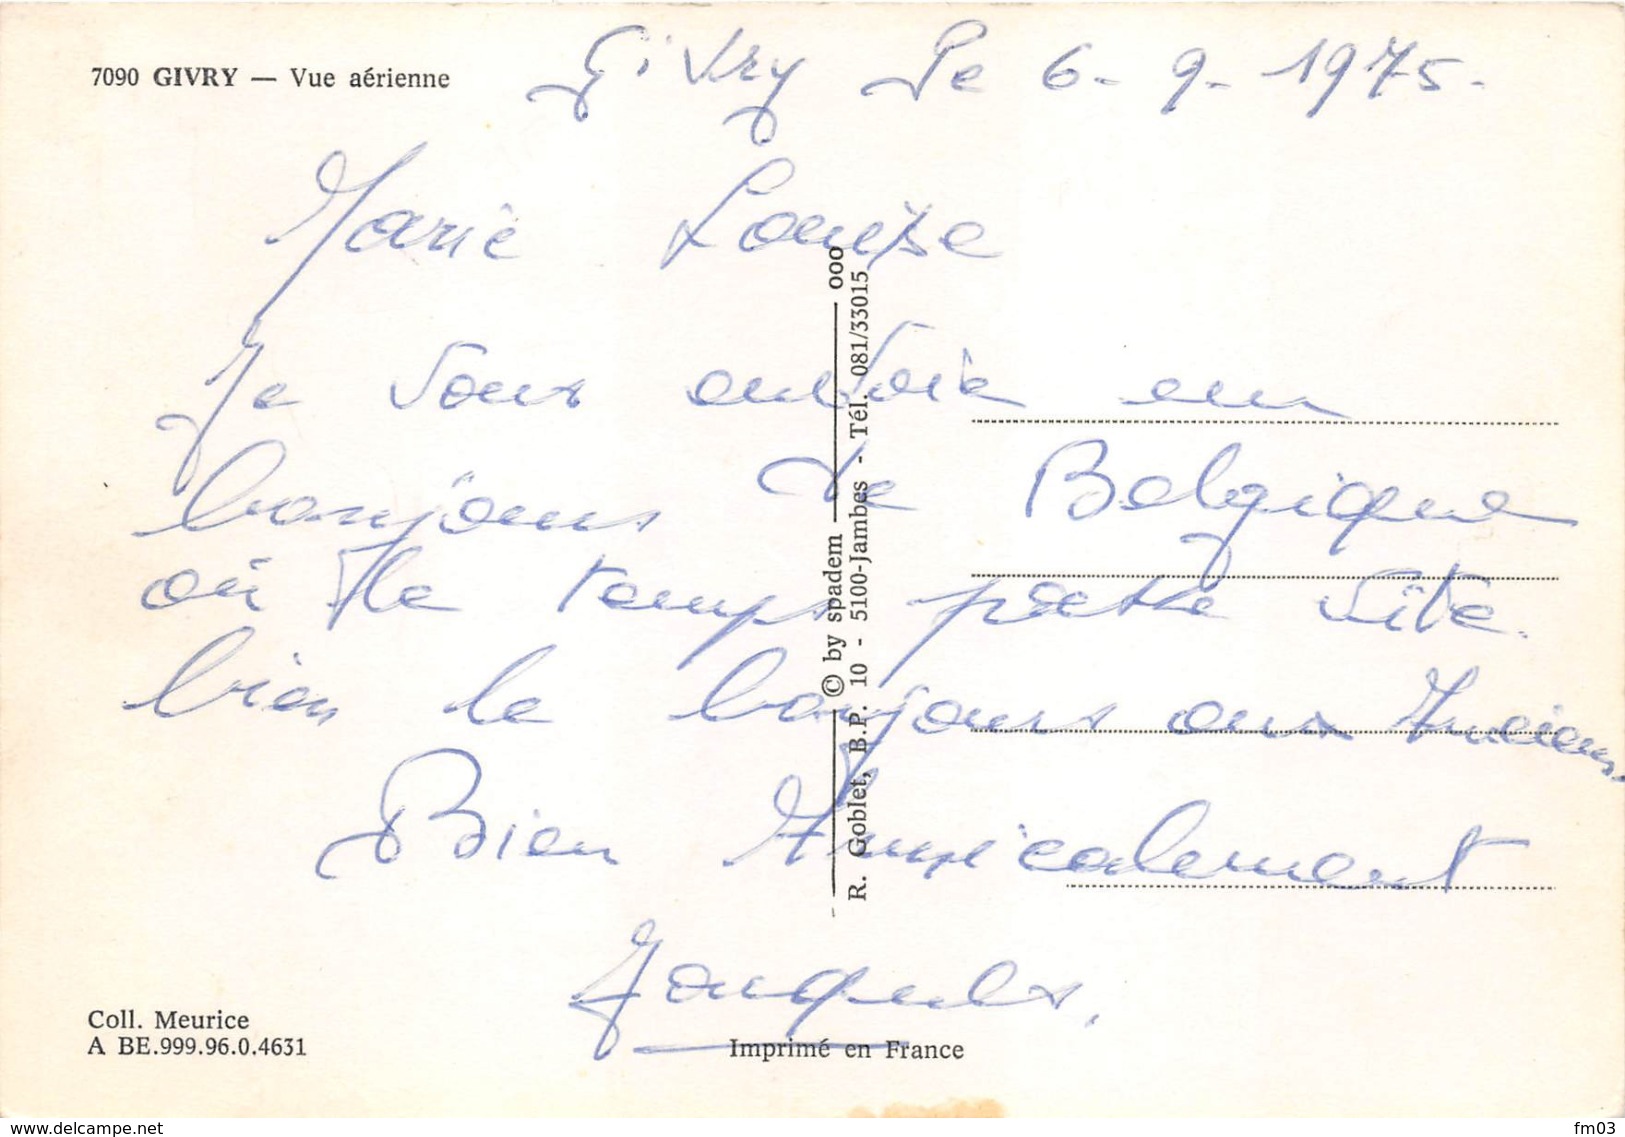 7090 GIVRY — Vue aérienne
Givry le 6-9-1975.
Marie Louise
Je vous envoie un
bonjour de Belgique
où le temps passe vite.
bien le bonjours aux Anciens
Bien Musicalement
Jacques.
ooo
© by spadem
R. Goblet, B.P. 10 - 5100-Jambes - Tél. 081/33015
Coll. Meurice
A BE.999.96.0.4631
Imprimé en France
www.delcampe.net
fm03